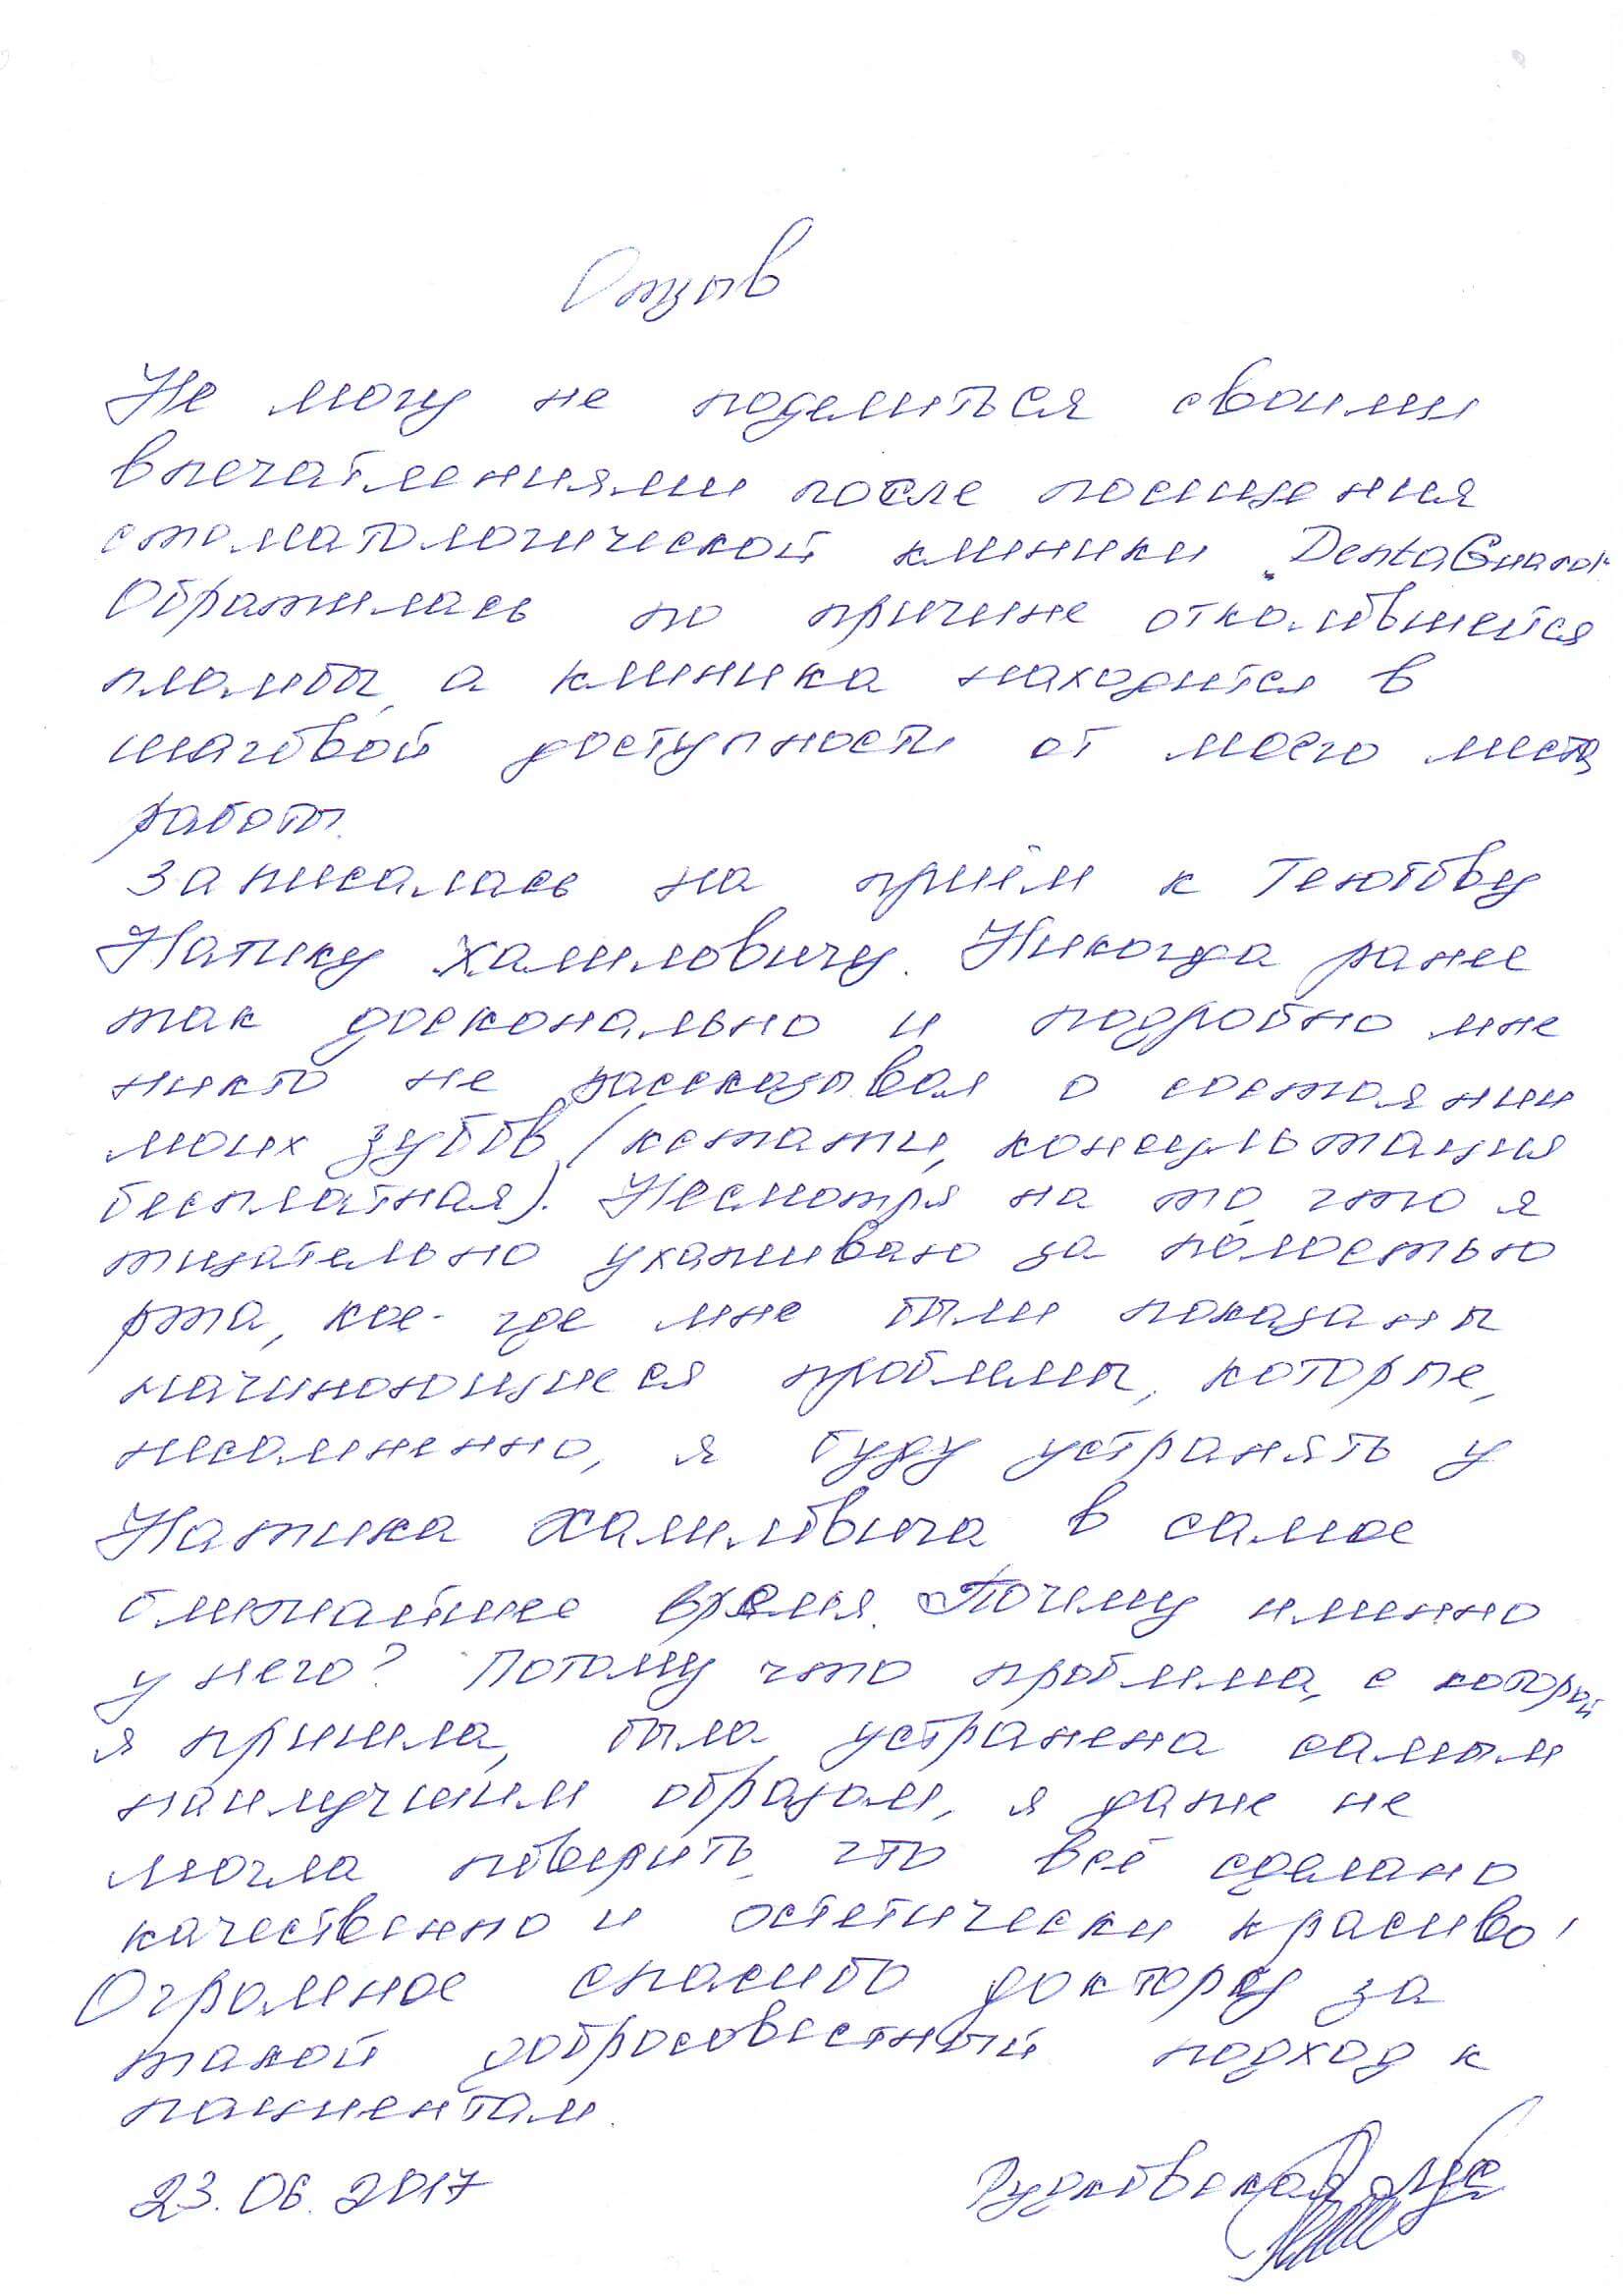 Отзыв
Не могу не поделиться своими
впечатлениями после посещения
стоматологической клиники DentaGuard.
Обратилась по причине отколовшейся
пломбы, а клиника находится в
шаговой доступности от моего места
работы.
Записалась на приём к Теютову
Натику Халиловичу. Никогда ранее
так досконально и подробно мне
никто не рассказывал о состоянии
моих зубов (кстати, консультация
бесплатная). Несмотря на то, что я
тщательно ухаживаю за полостью
рта, кое-где мне были показаны
начинающиеся проблемы, которые,
несомненно, я буду устранять у
Натика Халиловича в самое
ближайшее время. Почему именно
у него? Потому что проблема, с которой
я пришла, была устранена самым
наилучшим образом, я даже не
могла поверить, что всё сделано
качественно и эстетически красиво!
Огромное спасибо доктору за
такой добросовестный подход к
пациентам.
23.06.2017